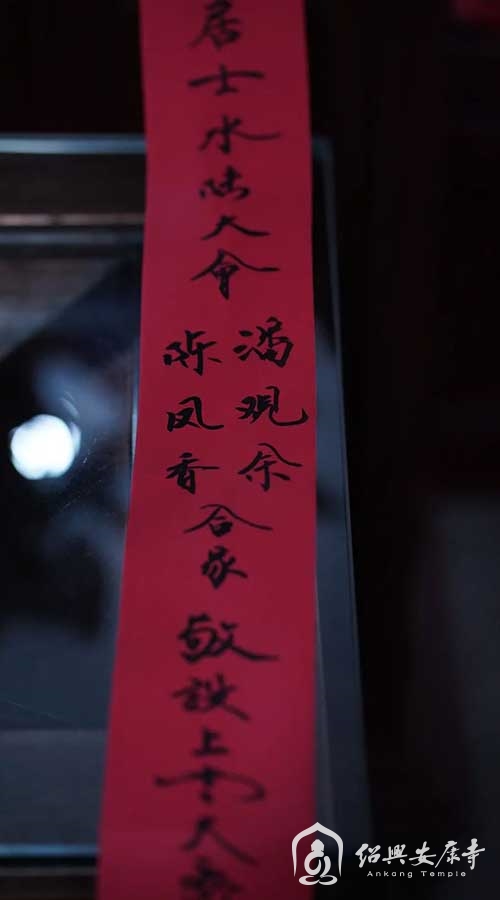 居士水陆大会
冯观余
陈凤香
合家
敬设上堂大斋
绍興安康寺
Ankang Temple